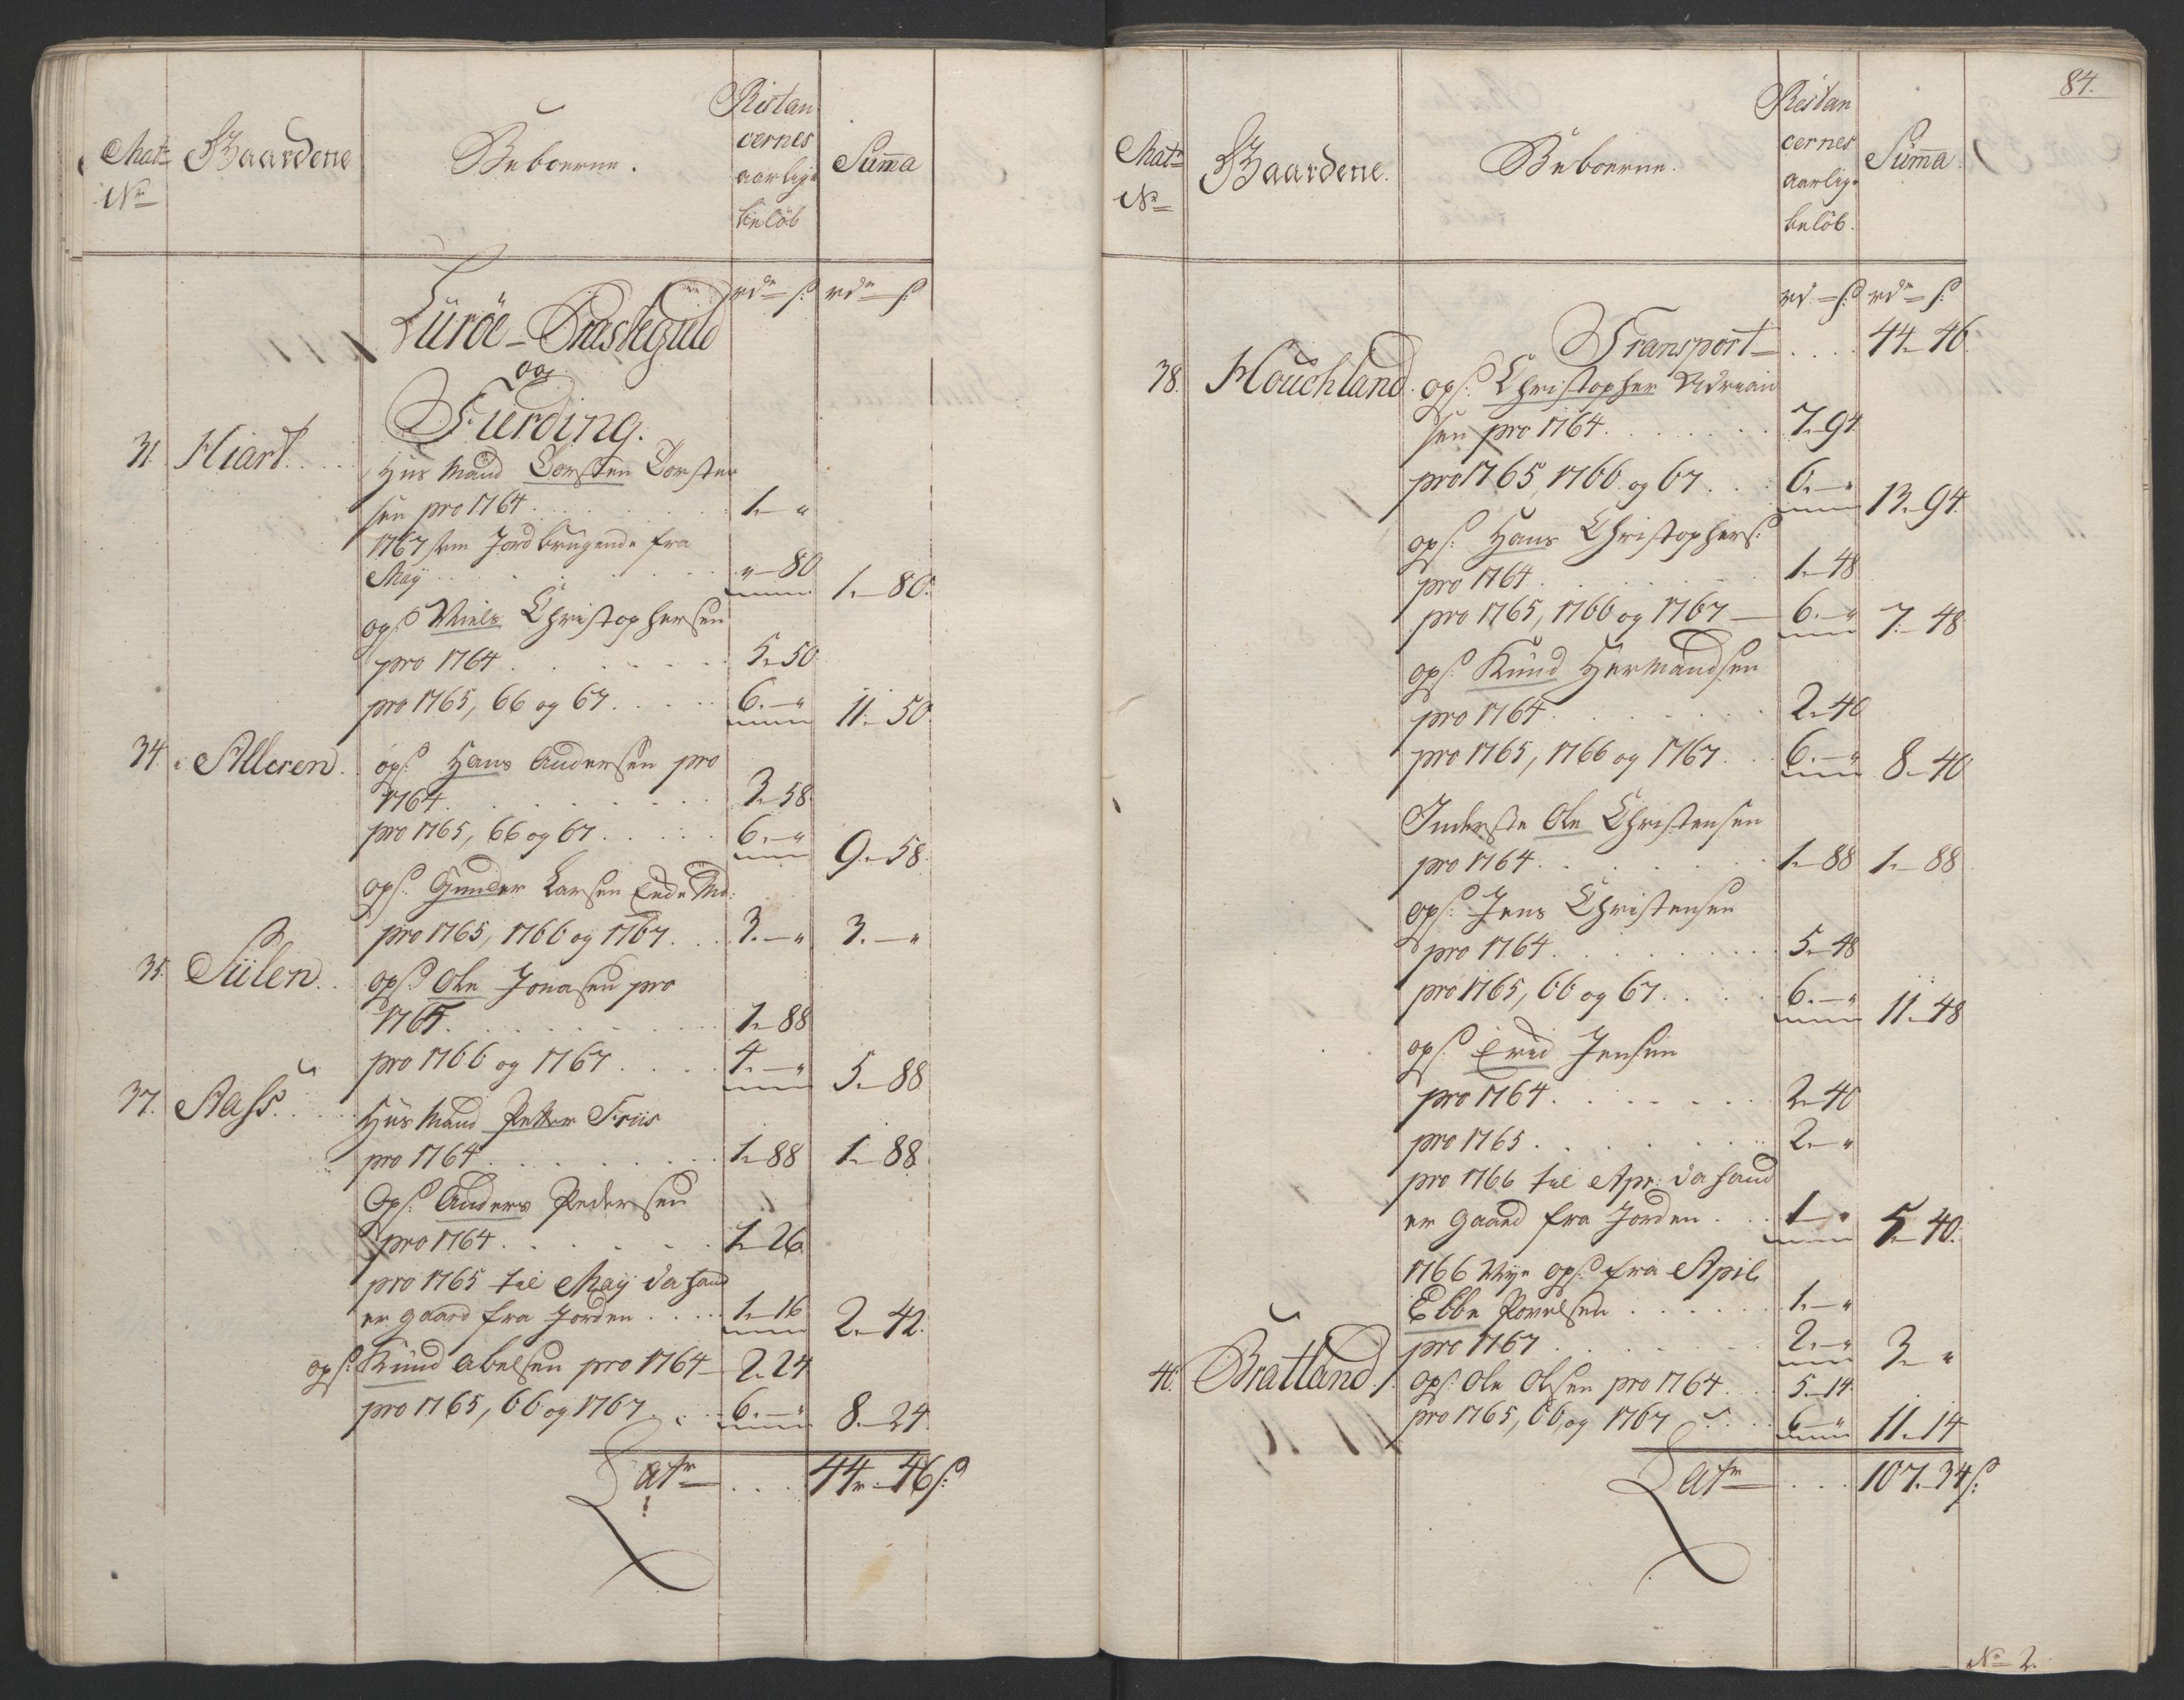 Mat:
No
Gaardene
Beboerne.
Restan
cernes
aarlige
belöb
Summa
rdr ß: rdr ß:
Luröe Præstegield
og
Fierding.
31. Hiart. Huusmand Torsten Torsten
sen pro 1764. 1. "
1767 som Jordbrugende fra
Maÿ " 80 1. 80.
ops. Niels Christophersen
pro 1764. 5. 50
pro 1765, 66 og 67. 6. " 11. 50.
34. Alleren. ops: Hans Andersen pro
1764. 3. 58.
pro 1765, 66 og 67. 6. " 9. 58.
ops. Gunder Larsen
pro 1765, 1766 og 1767. 3. " 3. "
35. Siilen. ops: Ole Jonasen pro
1765. 1. 88
pro 1766 og 1767. 4. " 5. 88
37. Aass. Huusmand Petter Friis
pro 1764. 1. 88 1. 88
Ops: Anders Pedersen
pro 1764. 1. 26
pro 1765 til Maÿ da hand
er gaard fra Jorden. 1. 16 2. 42.
ops: Knud Abelsen pro 1764 2. 24
pro 1765, 66 og 1767. 6. " 8. 24.
Latr 44. 46 ß:
84.
Matr
No
Gaardene.
Beboerne.
Restan
cernes
aarlige
belöb.
Summa.
rd ß: rdr ß:
Transport 44. 46.
38. Houchland. ops: Christopher Adrian
sen pro 1764. 7. 94
pro 1765, 1766 og 67. 6. " 13. 94.
ops: Hans Christophers:
pro 1764. 1. 48
pro 1765, 1766 og 1767 6. " 7. 48
ops: Knud Hermandsen
pro 1764. 2. 40
pro 1765, 1766 og 1767. 6. " 8. 40
Inderste Ole Christensen
pro 1764. 1. 88 1. 88
ops: Jens Christensen
pro 1764. 5. 48
pro 1765, 66 og 67. 6. " 11. 48
ops: Erid Jensen
pro 1764. 2. 40
pro 1765. 2. "
pro 1766 til Apr: da hand
er gaard fra Jorden. 1 " 5. 40.
1766 Nye ops: fra April
Ebbe Povelsen 1. "
pro 1767 2. " 3. "
40. Bratland. ops: Ole Olsen pro 1764. 5. 14
pro 1765, 66, og 1767 6. " 11. 14
Latr 107. 34 ß:
No 2.